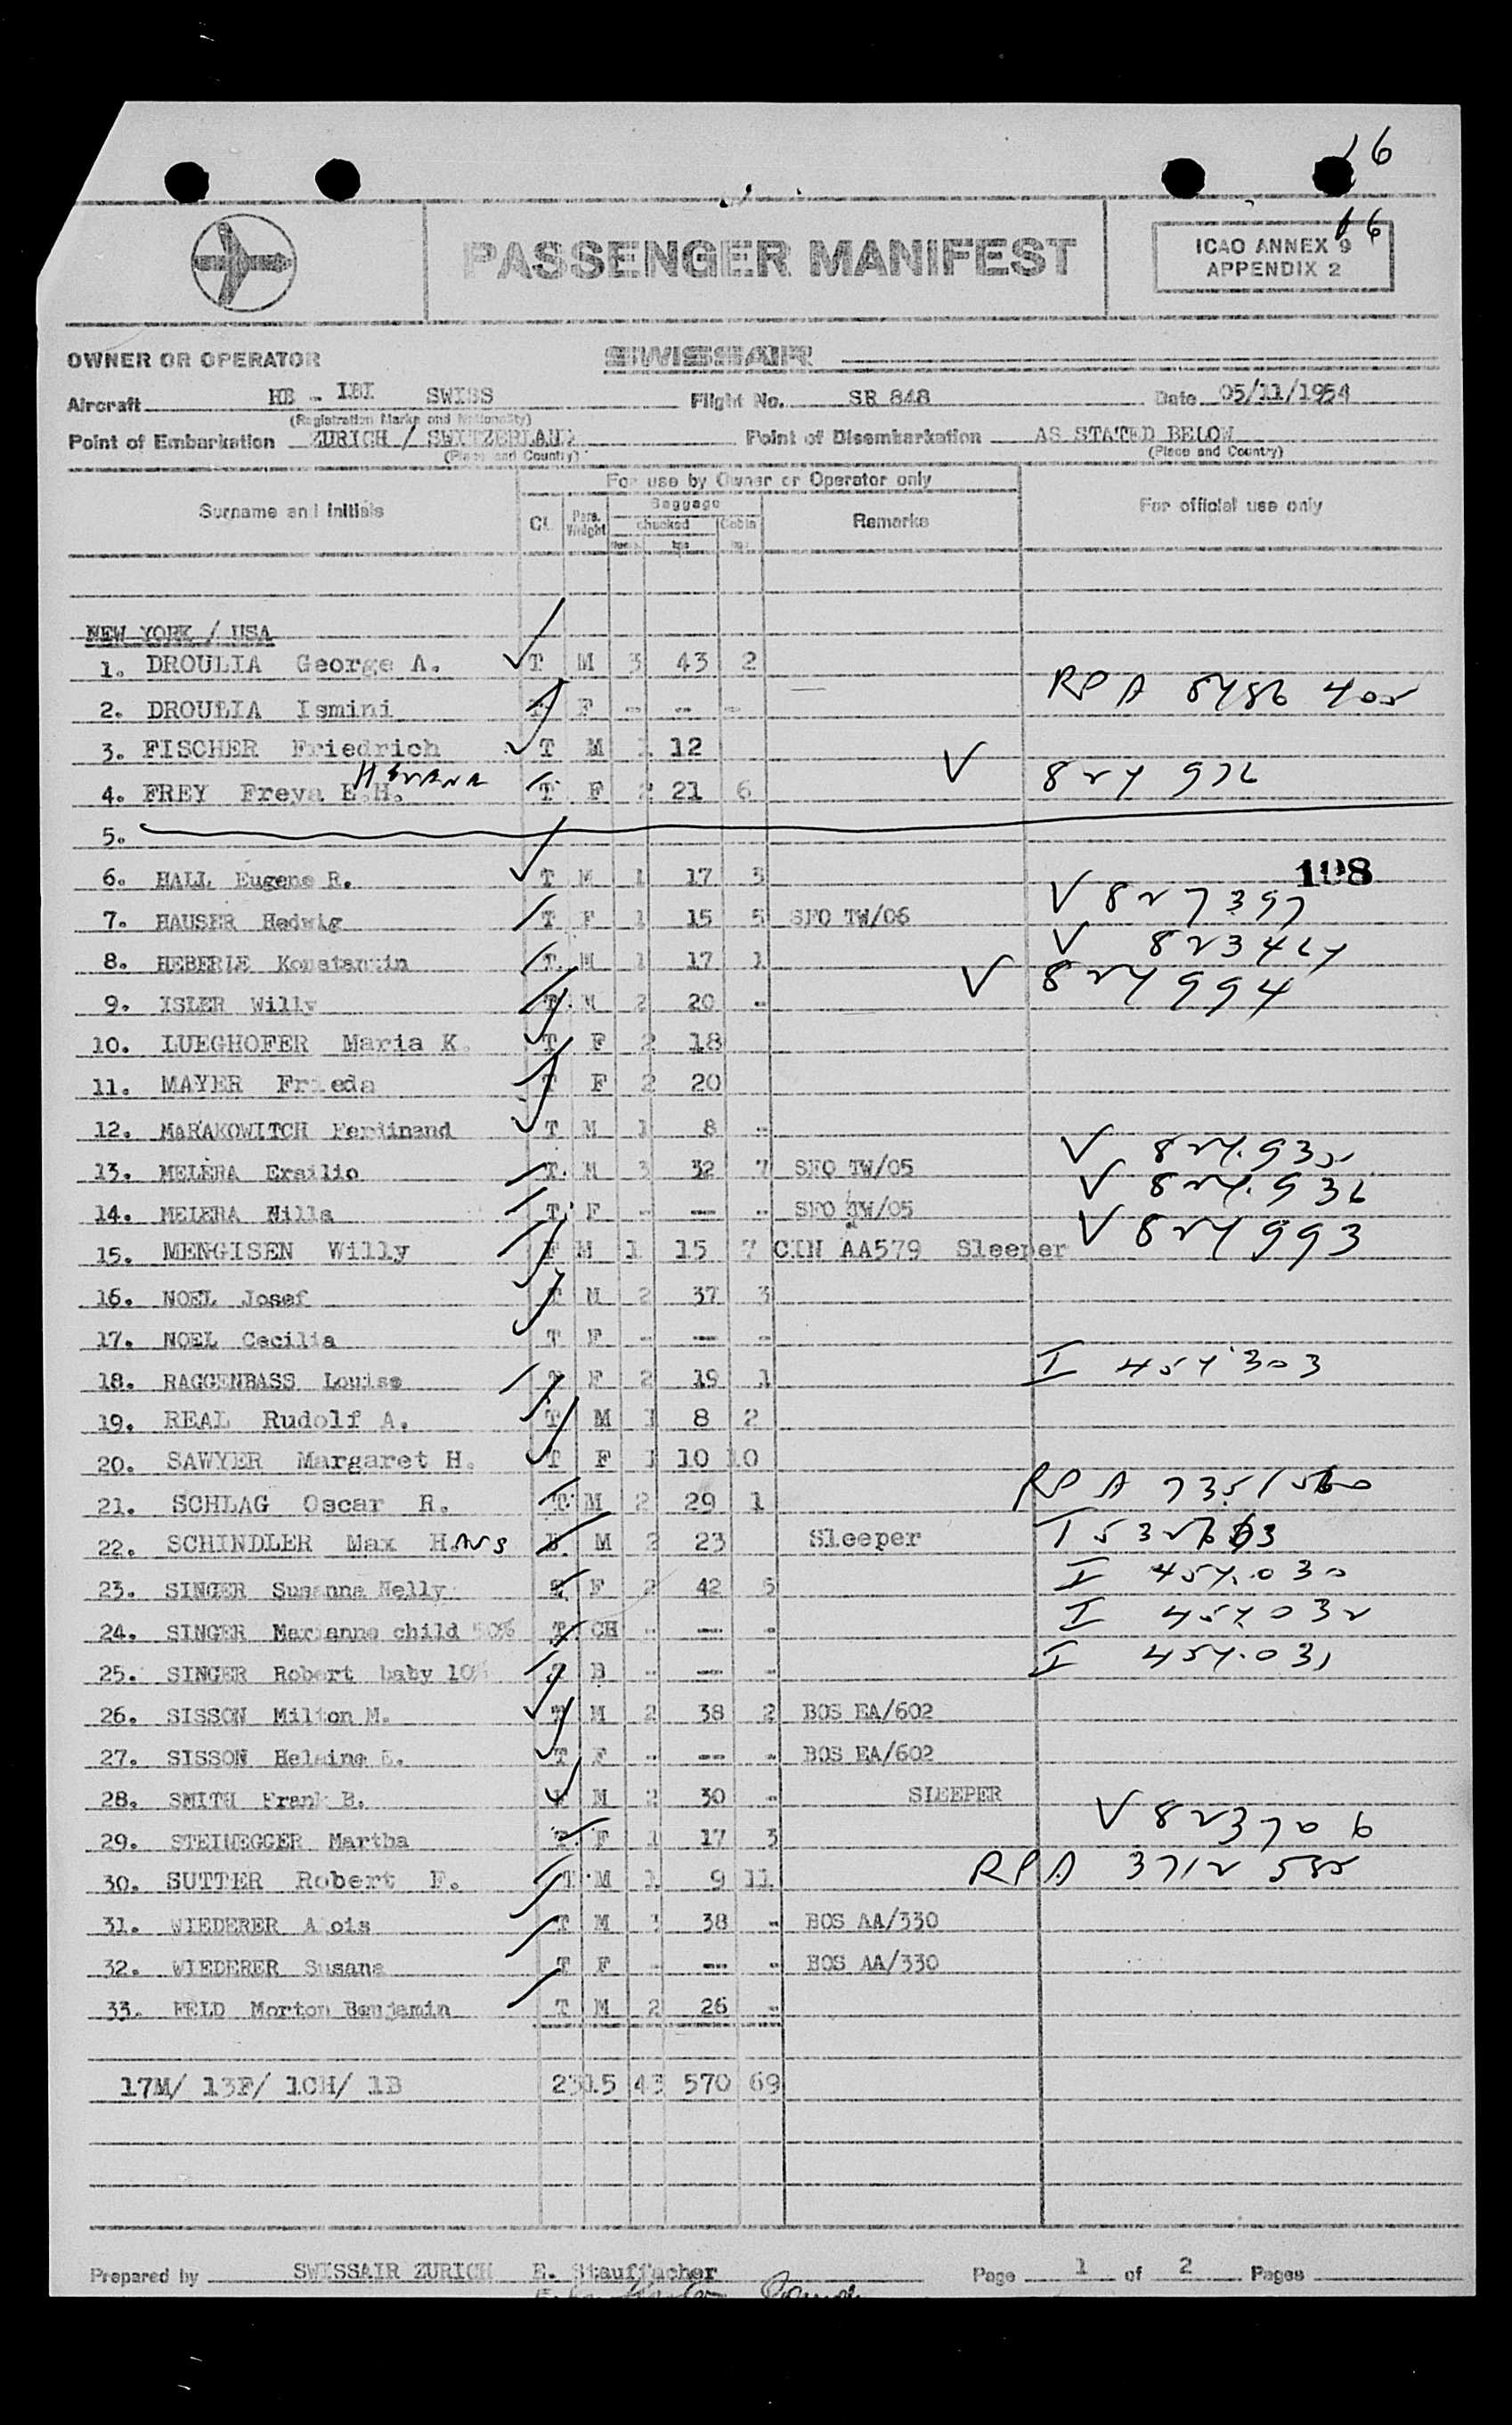 16
16
PASSENGER MANIFEST
ICAO ANNEX 9
APPENDIX 2
OWNER OR OPERATOR SWISSAIR
Aircraft HB - IBI SWISS Flight No. SR 848 Date 05/11/1954
(Registration Marks and Nationality)
Point of Embarkation ZURICH / SWITZERLAND Point of Disembarkation AS STATED BELOW
(Place and Country) (Place and Country)
For use by Owner or Operator only
Surname and initials Cl. Pass. Weight Baggage Remarks For official use only
checked Cabin
kgs
NEW YORK / USA
1. DROULIA George A. T M 3 43 2
2. DROULIA Ismini F - -- - RPA
3. FISCHER Friedrich T M 1 12
4. FREY Freya E.H. T F 2 21 6 V
5.
6. HALL Eugene R. T M 1 17 3 198
7. HAUSER Hedwig T F 1 15 5 SFO TW/06 V 827397
8. HEBERLE Konstantin T M 1 17 1 V
9. ISLER Willy T M 2 20 - V 824994
10. LUEGHOFER Maria K. T F 2 18
11. MAYER Frieda T F 2 20
12. MARAKOWITCH Ferdinand T M 1 8 -
13. MELERA Ersilio T M 3 32 7 SFO TW/05 V
14. MELERA Nilla T F - -- - SFO TW/05 V
15. MENGISEN Willy F M 1 15 7 CIN AA579 Sleeper V 824993
16. NOEL Josef T M 2 37 3
17. NOEL Cecilia T F - -- -
18. RAGGENBASS Louise T F 2 19 1 I 454303
19. REAL Rudolf A. T M 1 8 2
20. SAWYER Margaret H. T F 1 10 10
21. SCHLAG Oscar R. T M 2 29 1 RPA
22. SCHINDLER Max Hans F M 2 23 Sleeper I
23. SINGER Susanna Nelly T F 2 42 5 I 454.030
24. SINGER Marianne child 50% T CH - -- - I 454032
25. SINGER Robert baby 10% T B - -- - I 454.031
26. SISSON Milton M. T M 2 38 2 BOS EA/602
27. SISSON Helaine T F - -- - BOS EA/602
28. SMITH Frank B. F M 2 30 - SLEEPER
29. STEINEGGER Martha T F 1 17 3 V 823706
30. SUTTER Robert F. T M 1 9 11 RPA 3712
31. WIEDERER Alois T M 3 38 - BOS AA/330
32. WIEDERER Susana T F - -- - BOS AA/330
33. FELD Morton Benjamin T M 2 26 -
17M/ 13F/ 1CH/ 1B 2315 43 570 69
Prepared by SWISSAIR ZURICH E. Stauffacher Page 1 of 2 Pages